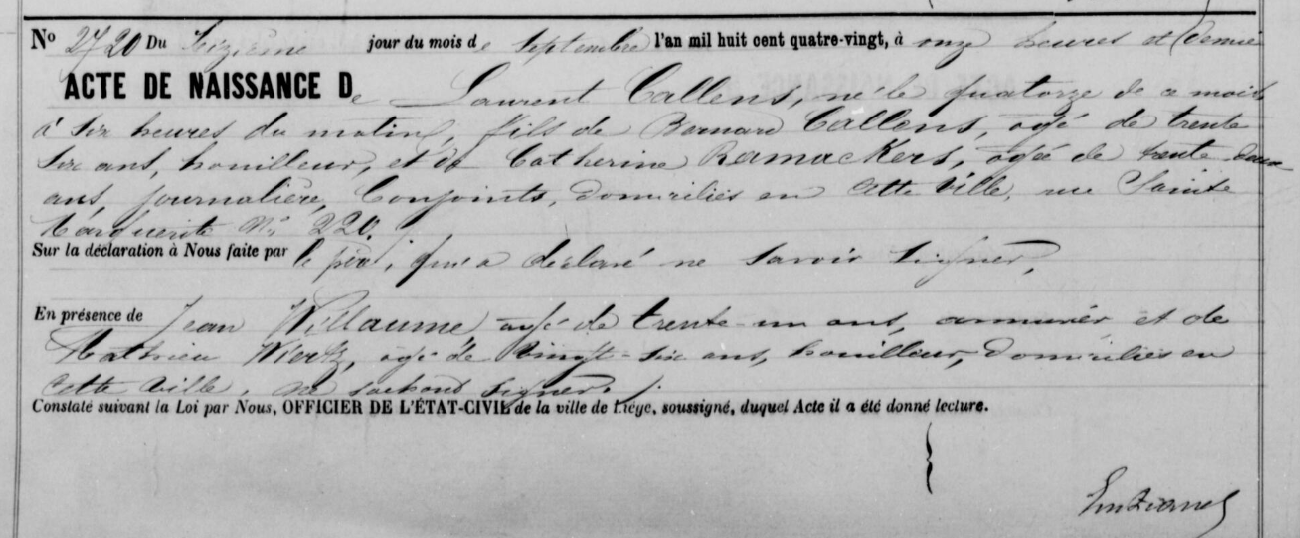 No 2720 Du seizième jour du mois de septembre l'an mil huit cent quatre-vingt, à onze heures et demie
ACTE DE NAISSANCE De Laurent Callens, né le quatorze de ce mois
à six heures du matin, fils de Bernard Callens, agé de trente
six ans, houilleur, et de Catherine Ramackers, agée de trente deux
ans, journalière, Conjoints, domiciliés en cette ville, rue Sainte
Marguerite No 220.
Sur la déclaration à Nous faite par le père, qui a déclaré ne savoir signer,
En présence de Jean Willaume agé de trente-un ans, armurier et de
Mathieu Wertz, agé de vingt-six ans, houilleur, domiciliés en
cette ville, ne sachant signer.
Constaté suivant la Loi par Nous, OFFICIER DE L'ÉTAT-CIVIL de la ville de Liége, soussigné, duquel Acte il a été donné lecture.